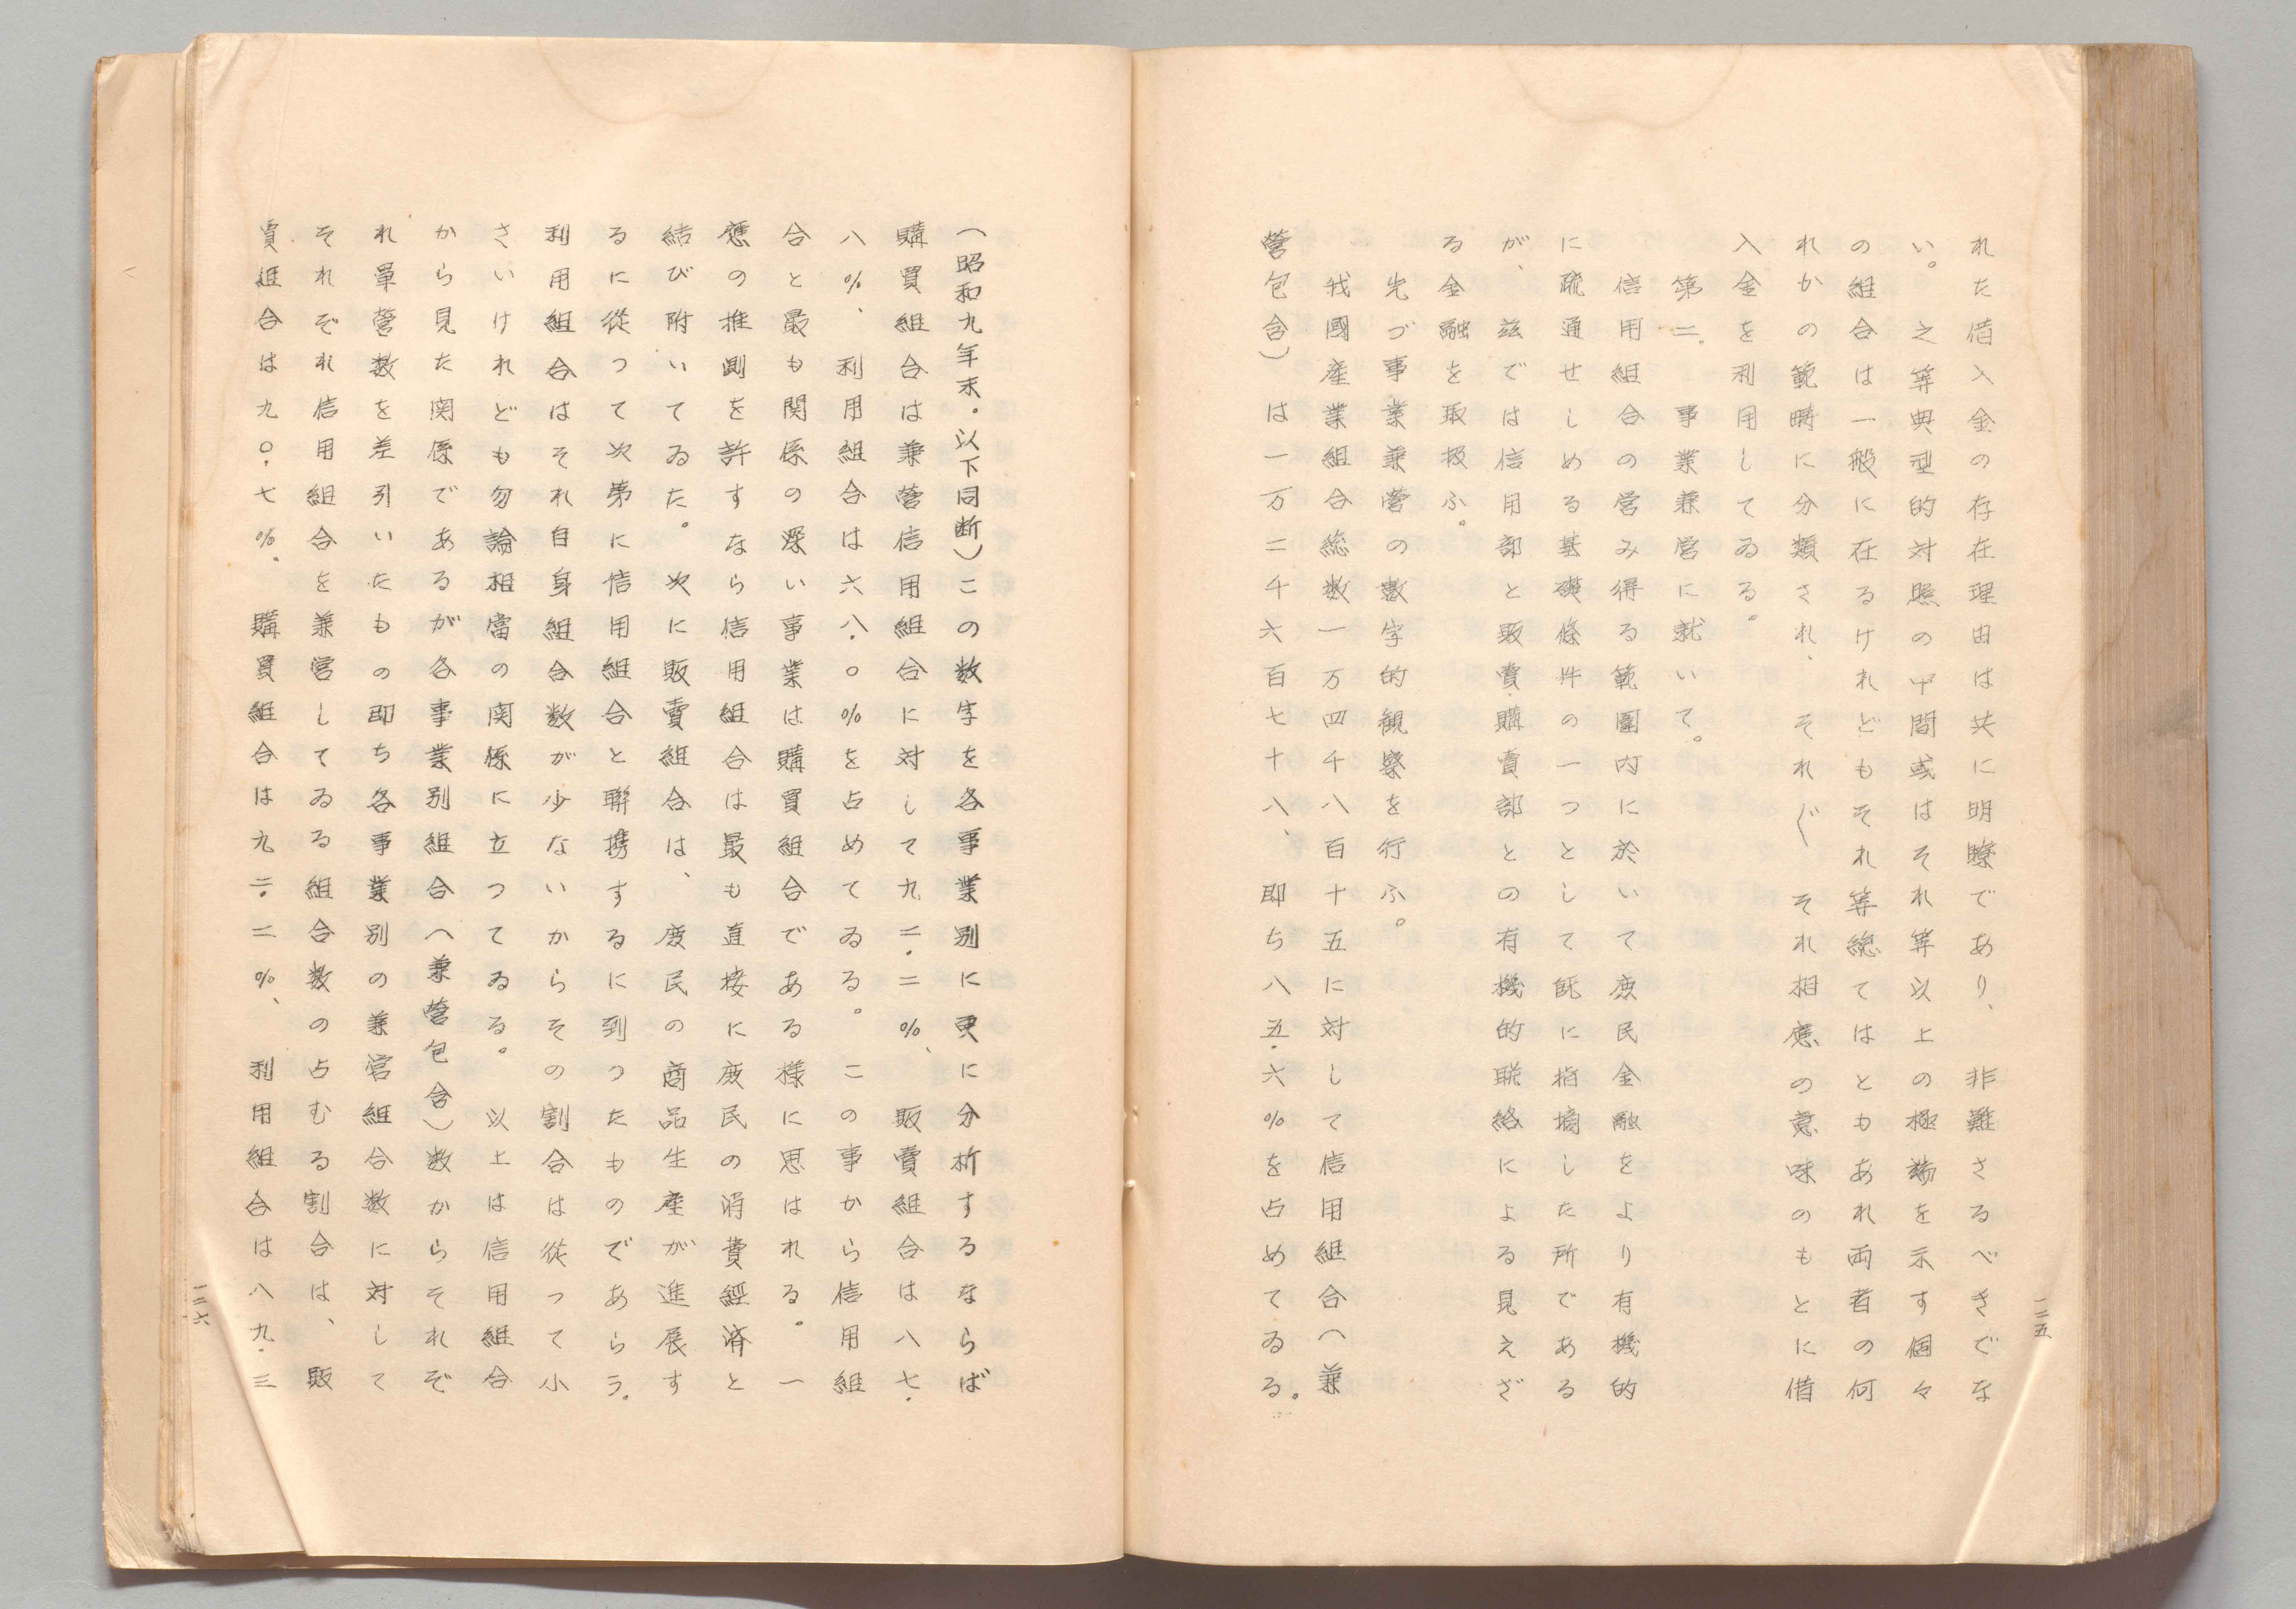 れた借入金の存在理由は共に明瞭であり、非難さるべきでな
い。之等典型的対照の中間或はそれ等以上の極端を示す個々
の組合は一般に在るけれどもそれ等総てはともあれ両者の何
れかの範疇に分類され、それ〴〵それ相應の意味のもとに借
入金を利用してゐる。
第二。事業兼営に就いて。
信用組合の営み得る範圍内に於いて庶民金融をより有機的
に疏通せしめる基礎條件の一つとして既に指摘した所である
が、茲では信用部と販賣購買部との有機的聯絡による見えざ
る金融を取扱ふ。
先づ事業兼営の數字的観察を行ふ。
我國産業組合総数一万四千八百十五に対して信用組合（兼
営包含）は一万二千六百七十八、即ち八五・六％を占めてゐる。
一二五
（昭和九年末。以下同断）この数字を各事業別に更に分析するならば
購買組合は兼営信用組合に対して九二・二％、販賣組合は八七・
八％、利用組合は六八・〇％を占めてゐる。この事から信用組
合と最も関係の深い事業は購買組合である様に思はれる。一
應の推測を許すなら信用組合は最も直接に庶民の消費經済と
結び附いてゐた。次に販賣組合は、庶民の商品生産が進展す
るに從つて次第に信用組合と聯携するに到つたものであらう。
利用組合はそれ自身組合数が少ないからその割合は從つて小
さいけれども勿論相當の関係に立つてゐる。以上は信用組合
から見た関係であるが各事業別組合（兼営包含）数からそれぞ
れ單営数を差引いたもの即ち各事業別の兼営組合数に対して
それぞれ信用組合を兼営してゐる組合数の占むる割合は、販
賣組合は九〇・七％、購買組合は九二・二％、利用組合は八九・三
一二六